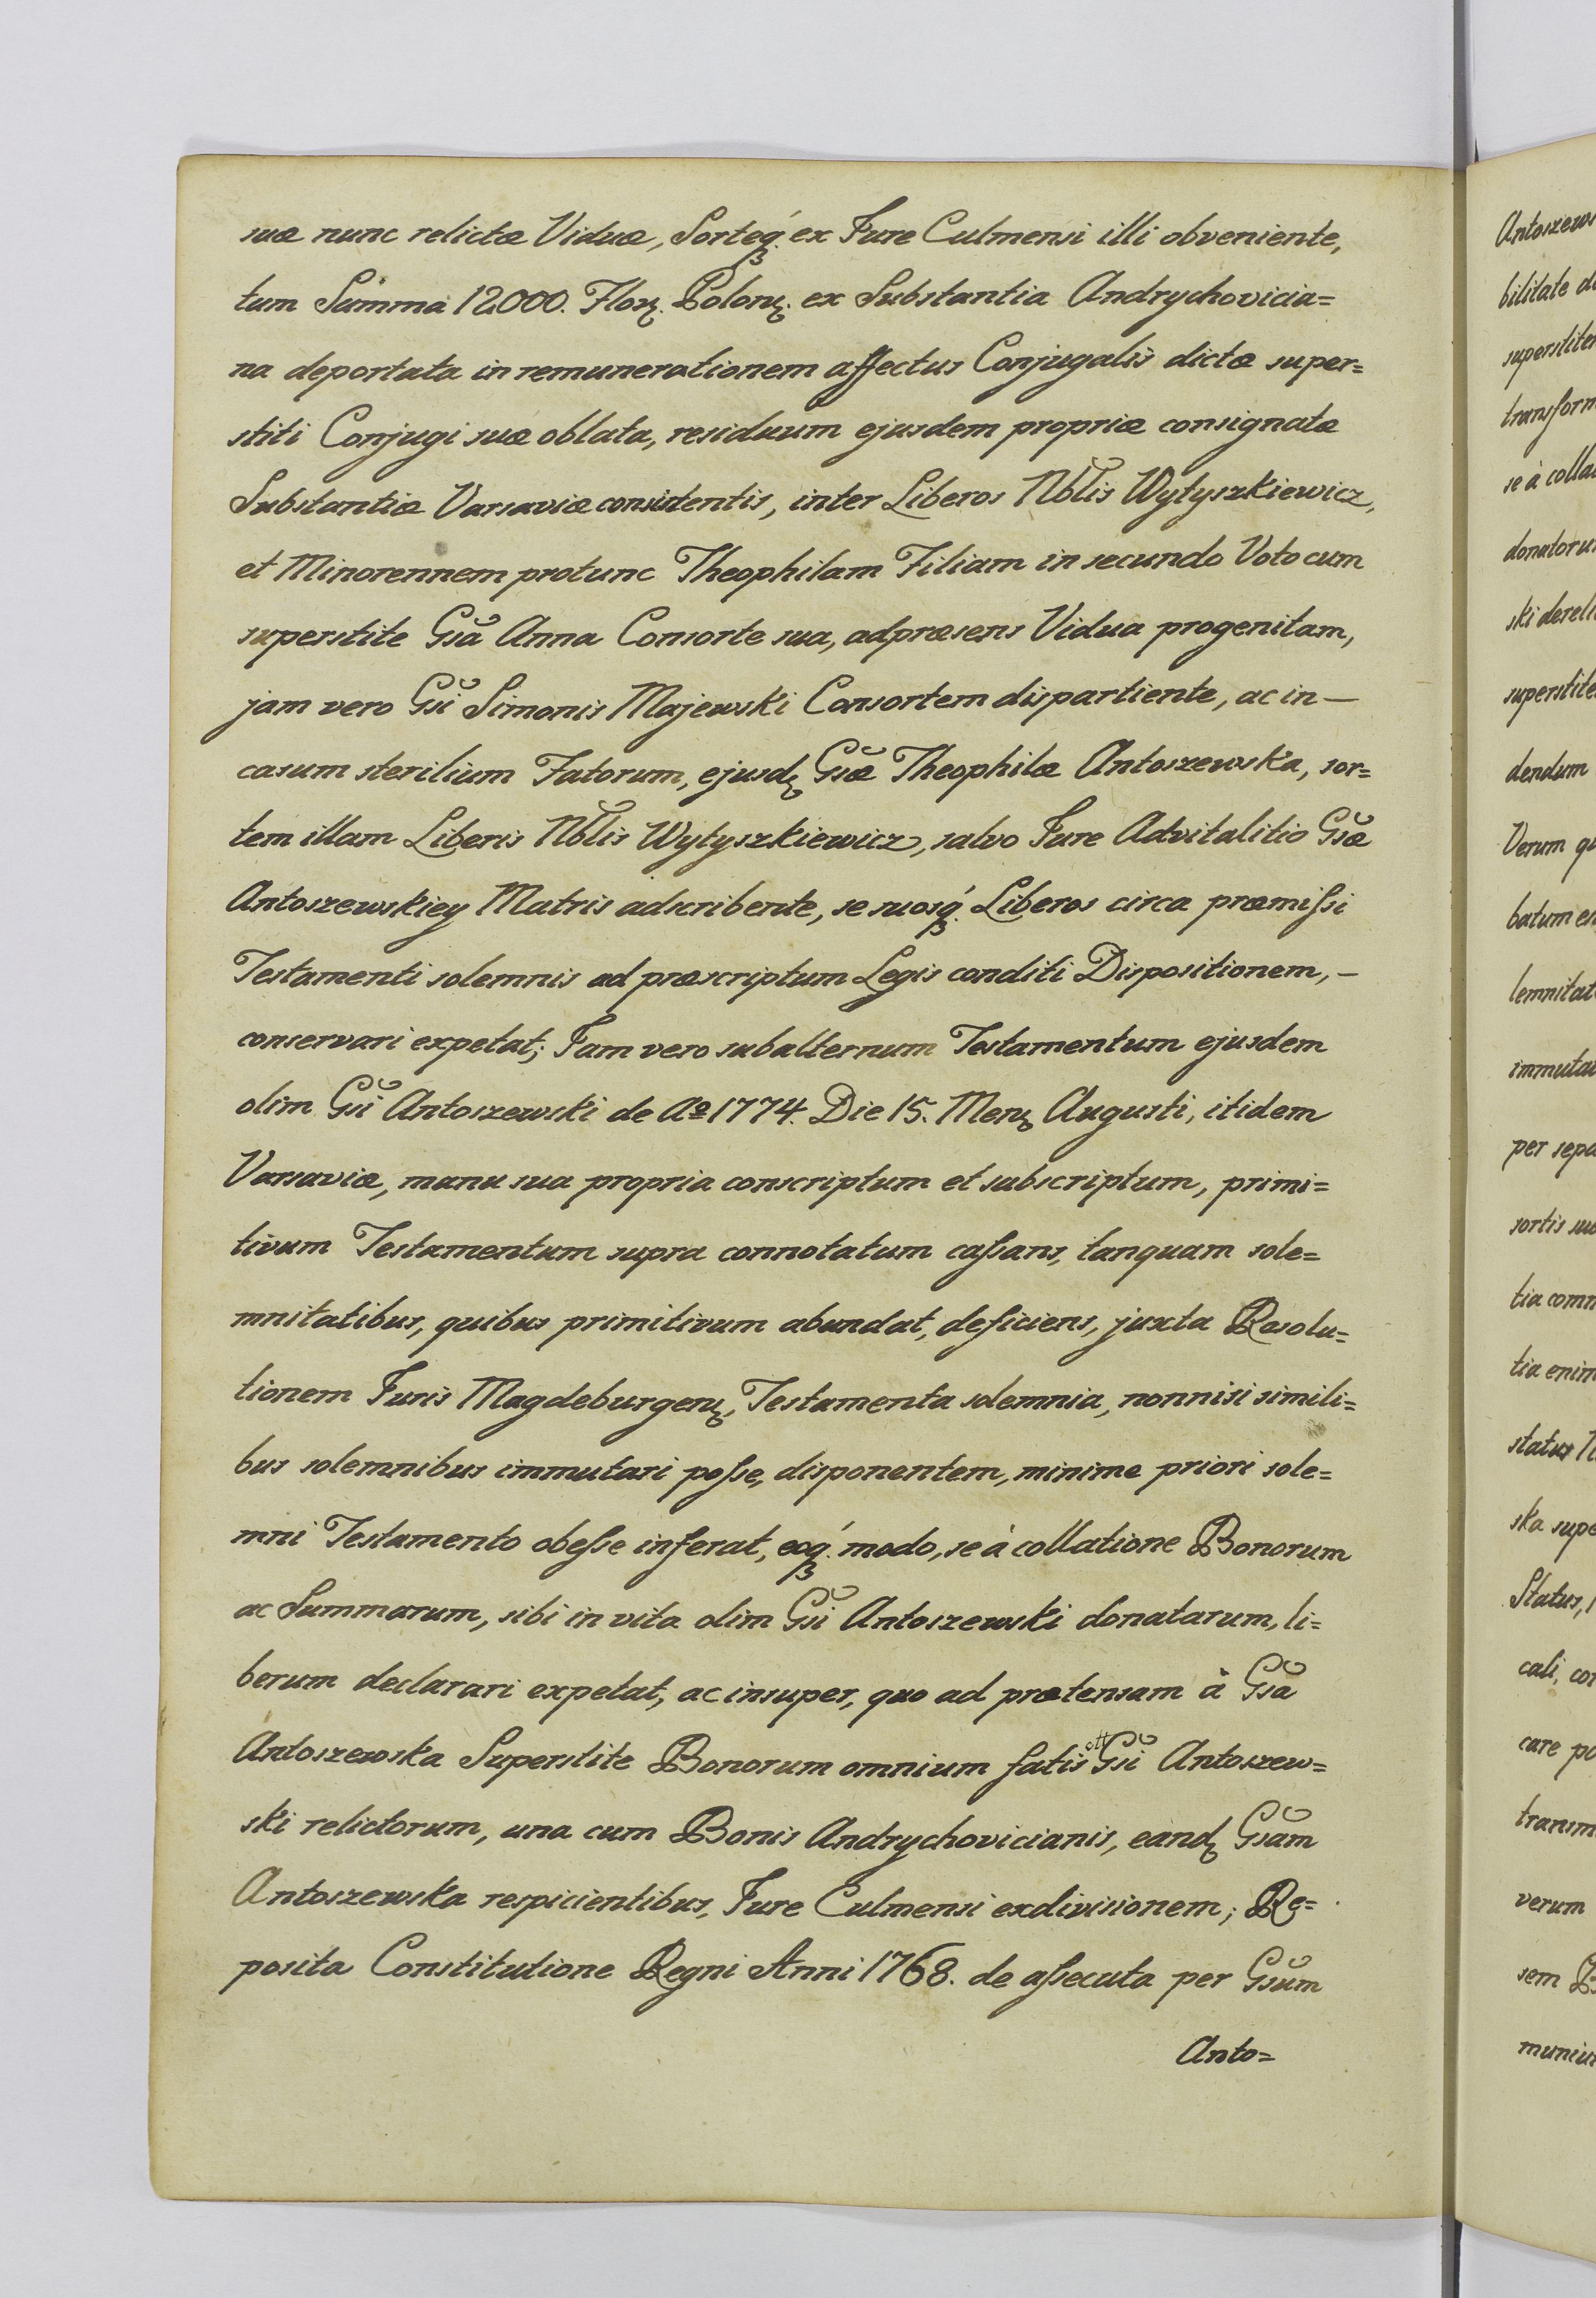 suæ nunc relictæ Viduæ, Sorteq́ꝫ ex Jure Culmensi illi obveniente,
tum Summa 12000. Florꝫ. Polonꝫ. ex Substantia Andrychovicia=
na deportata in remunerationem affectus Conjugalis dictæ super=
stiti Conjugi suæ oblata, residuum ejusdem propriæ consignatæ
Substantiæ Varsaviæ consistentis, inter Liberos Nblis Wytyszkiewicz,
et Minorennem protunc Theophilam Filiam in secundo Voto cum
superstite Gsa Anna Consorte sua, adpræsens Vidua progenitam,
jam vero Gsi Simonis Majewski Consortem dispartiente, ac in—
casum sterilium Fatorum, ejusdꝫ Gsæ Theophilæ Antoszewska, sor=
tem illam Liberis Nblis Wytyszkiewicz, salvo Jure Advitalitio Gsæ
Antoszewskiey Matris adscribente, se suosq́ꝫ. Liberos circa præmiſsi
Testamenti solemnis ad præscriptum Legis conditi Dispositionem,—
conservari expetat; Jam vero subalternum Testamentum ejusdem
olim Gsi Antoszewski de Aº 1774. Die 15. Mensꝫ Augusti, itidem
Varsaviæ, manu sua propria conscriptum et subscriptum, primi=
tivum Testamentum supra connotatum caſsans, tanquam sole=
mnitatibus, quibus primitivum abundat, deficiens, juxta Resolu=
tionem Juris Magdeburgensꝫ, Testamenta solemnia, nonnisi simili=
bus solemnibus immutari poſse, disponentem, minime priori sole=
mni Testamento obeſse inferat, eoq́ꝫ. modo, se à collatione Bonorum
ac Summarum, sibi in vita olim Gsi Antoszewski donatarum, li=
berum declarari expetat, ac insuper, quo ad prætensam à Gsa
Antoszewska Superstite Bonorum omnium fatis olt Gsi Antoszew=
ski relictorum, una cum Bonis Andrychovicianis, eandꝫ Gsam
Antoszewska respicientibus, Jure Culmensi exdivisionem; Re=
posita Constitutione Regni Anni 1768. de aſsecuta per Gsum
Anto=
Antoszews
bilitate d
superstite
transform
se à colla
donatoru
ski dereli
superstite
dendum
Verum qu
batum en
lemnitat
immuta
per sepa
sortis su
tia comm
tia enim
status T
ska supe
Status,
cali, co
care po
transm
verum
sem
muniu